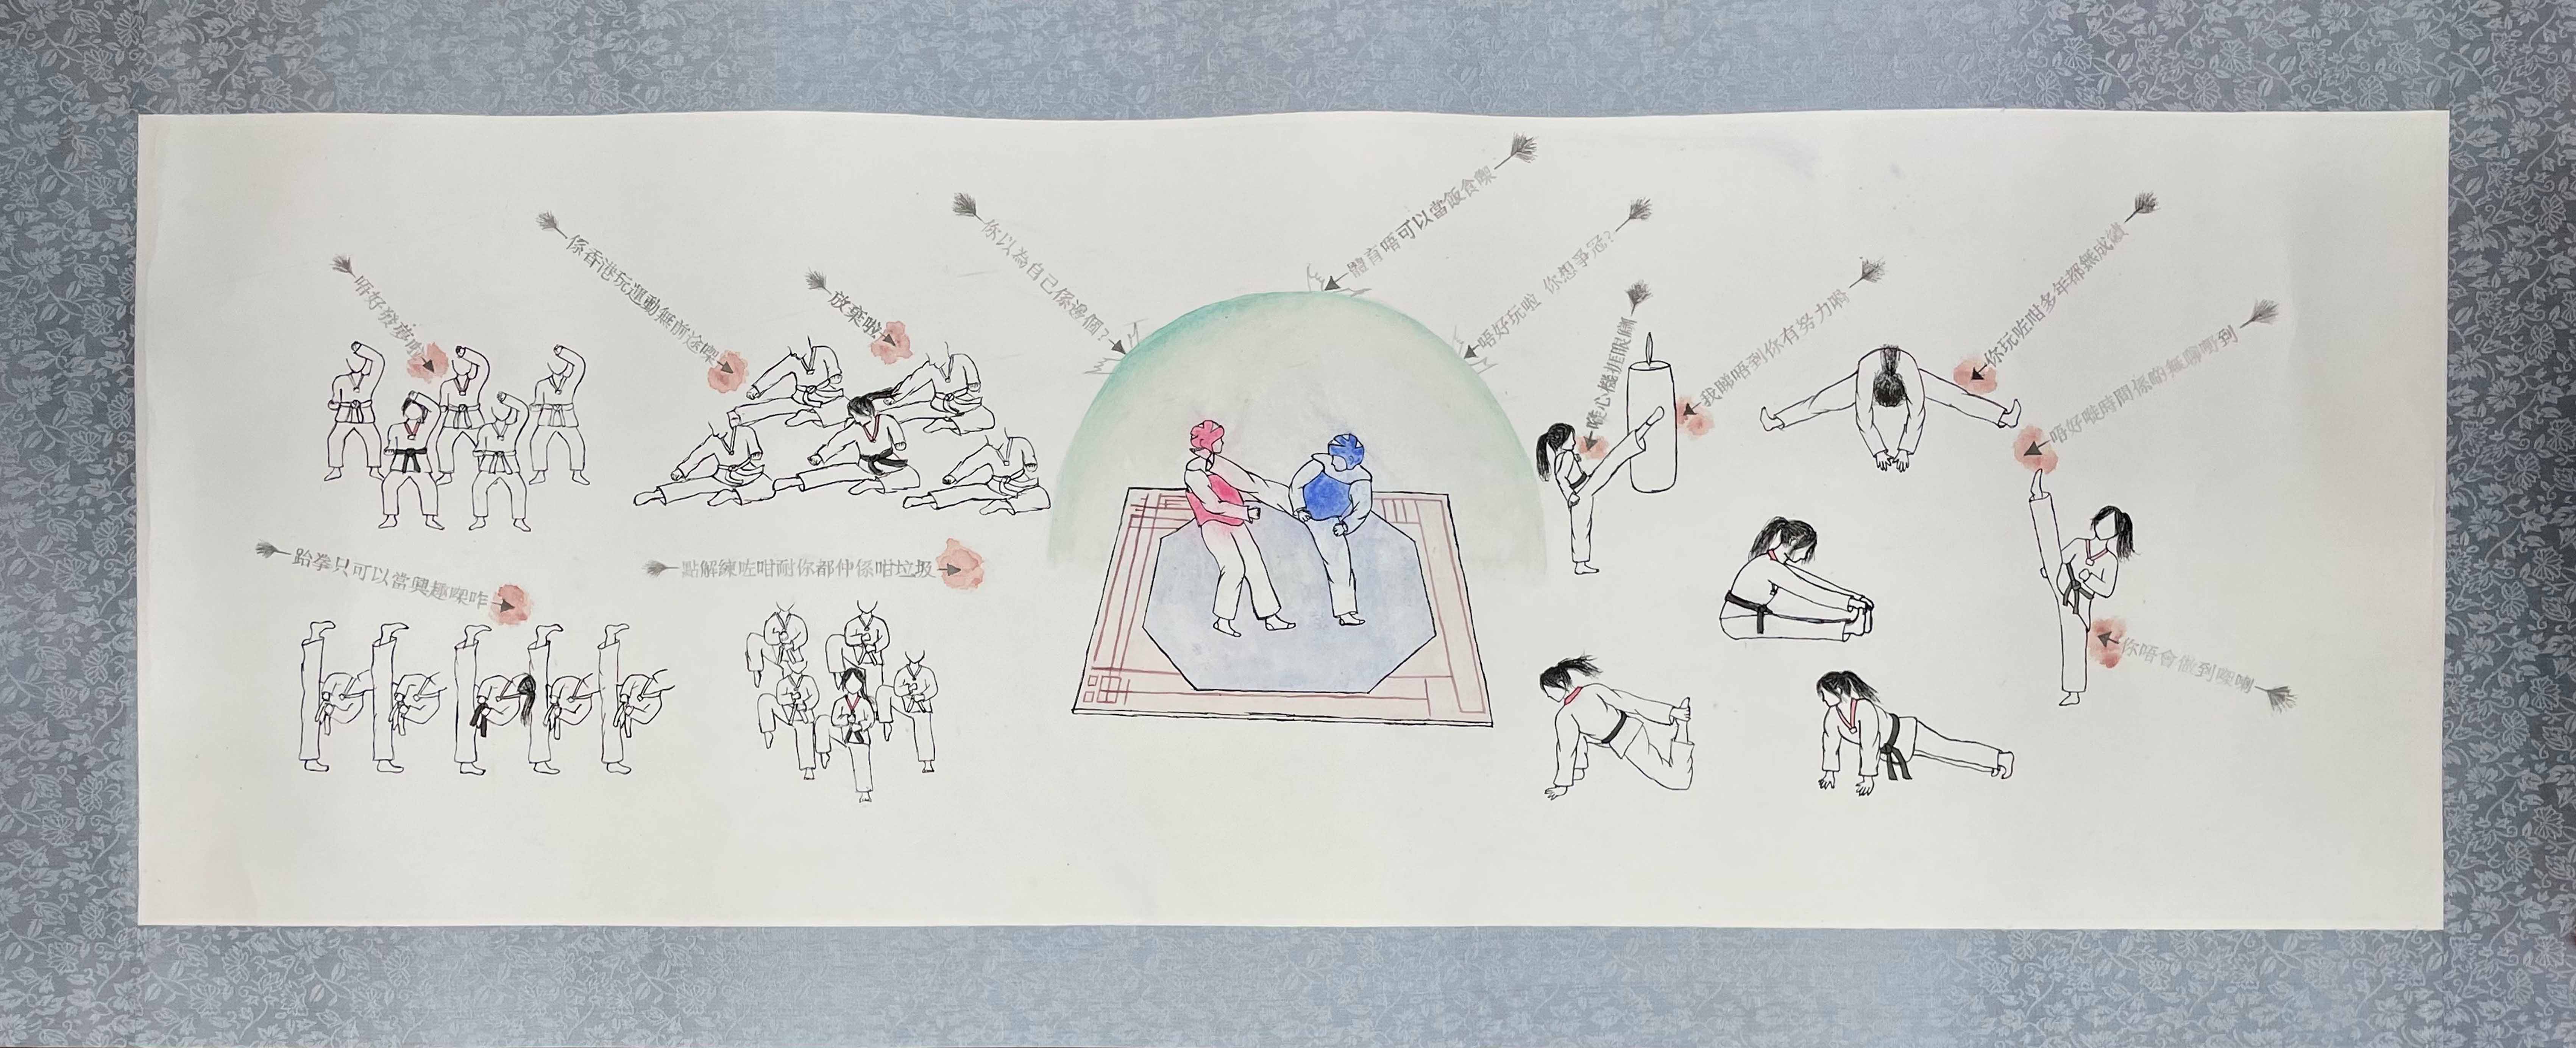 唔好發夢啦
係香港玩運動無前途㗎
放棄啦
你以為自己係邊個？
體育唔可以當飯食㗎
唔好玩啦 你想爭冠？
嘥心機捱眼瞓
我睇唔到你有努力喎
你玩咗咁多年都無成績
唔好嘥時間係啲無聊嘢到
跆拳只可以當興趣㗎咋
點解練咗咁耐你都仲係咁垃圾
你唔會做到㗎喇